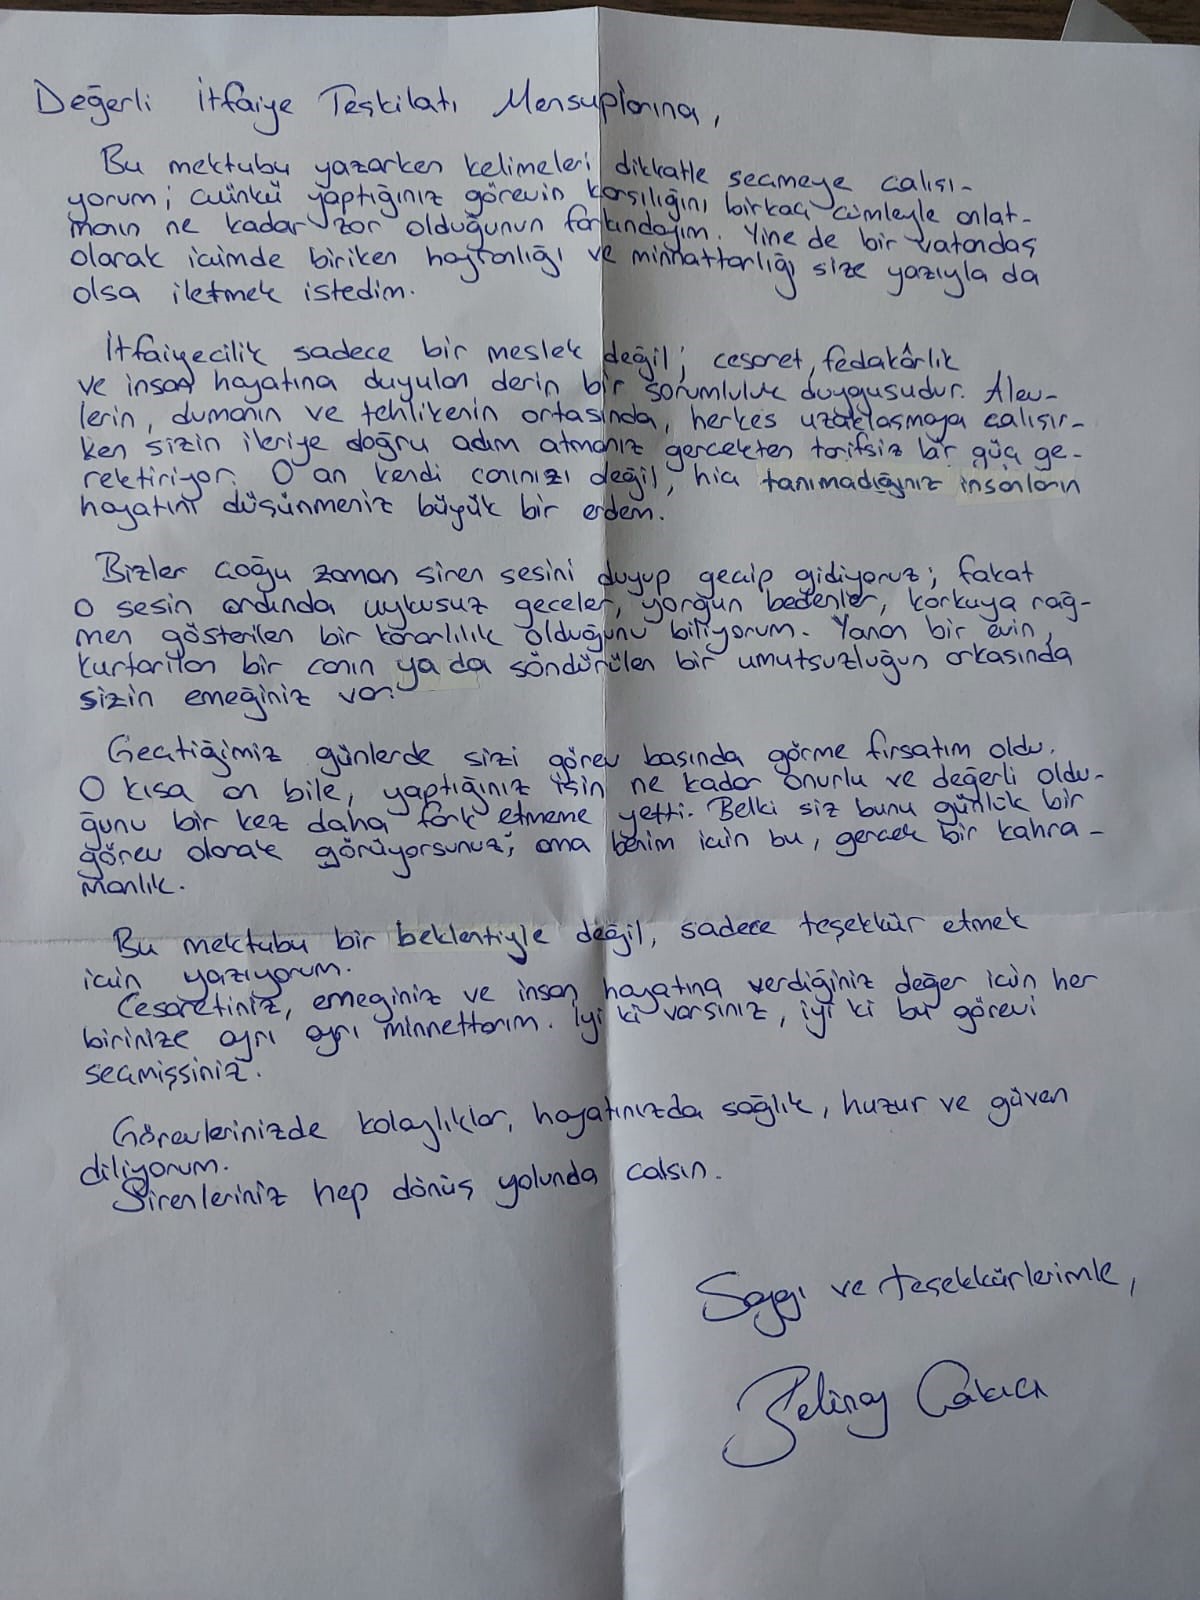 Değerli İtfaiye Teşkilatı Mensuplarına,
Bu mektubu yazarken kelimeleri dikkatle seçmeye çalışı-
yorum; çünkü yaptığınız görevin karşılığını birkaç cümleyle anlat-
manın ne kadar zor olduğunun farkındayım. Yine de bir vatandaş
olarak içimde biriken hayranlığı ve minnattarlığı size yazıyla da
olsa iletmek istedim.
İtfaiyecilik sadece bir meslek değil; cesaret, fedakârlık
ve insan hayatına duyulan derin bir sorumluluk duygusudur. Alev-
lerin, dumanın ve tehlikenin ortasında, herkes uzaklaşmaya çalışır-
ken sizin ileriye doğru adım atmanız gerçekten tarifsiz bir güç ge-
rektiriyor. O an kendi canınızı değil, hiç tanımadığınız insanların
hayatını düşünmeniz büyük bir erdem.
Bizler çoğu zaman siren sesini duyup geçip gidiyoruz; fakat
o sesin ardında uykusuz geceler, yorgun bedenler, korkuya rağ-
men gösterilen bir kararlılık olduğunu biliyorum. Yanan bir evin,
kurtarılan bir canın ya da söndürülen bir umutsuzluğun arkasında
sizin emeğiniz var.
Geçtiğimiz günlerde sizi görev başında görme fırsatım oldu.
O kısa an bile, yaptığınız işin ne kadar onurlu ve değerli oldu-
ğunu bir kez daha fark etmeme yetti. Belki siz bunu günlük bir
görev olarak görüyorsunuz; ama benim için bu, gerçek bir kahra-
manlık.
Bu mektubu bir beklentiyle değil, sadece teşekkür etmek
için yazıyorum.
Cesaretiniz, emeğiniz ve insan hayatına verdiğiniz değer için her
birinize ayrı ayrı minnettarım. İyi ki varsınız, iyi ki bu görevi
seçmişsiniz.
Görevlerinizde kolaylıklar, hayatınızda sağlık, huzur ve güven
diliyorum.
Sirenleriniz hep dönüş yolunda çalsın.
Saygı ve teşekkürlerimle,
Selinay Çakıcı